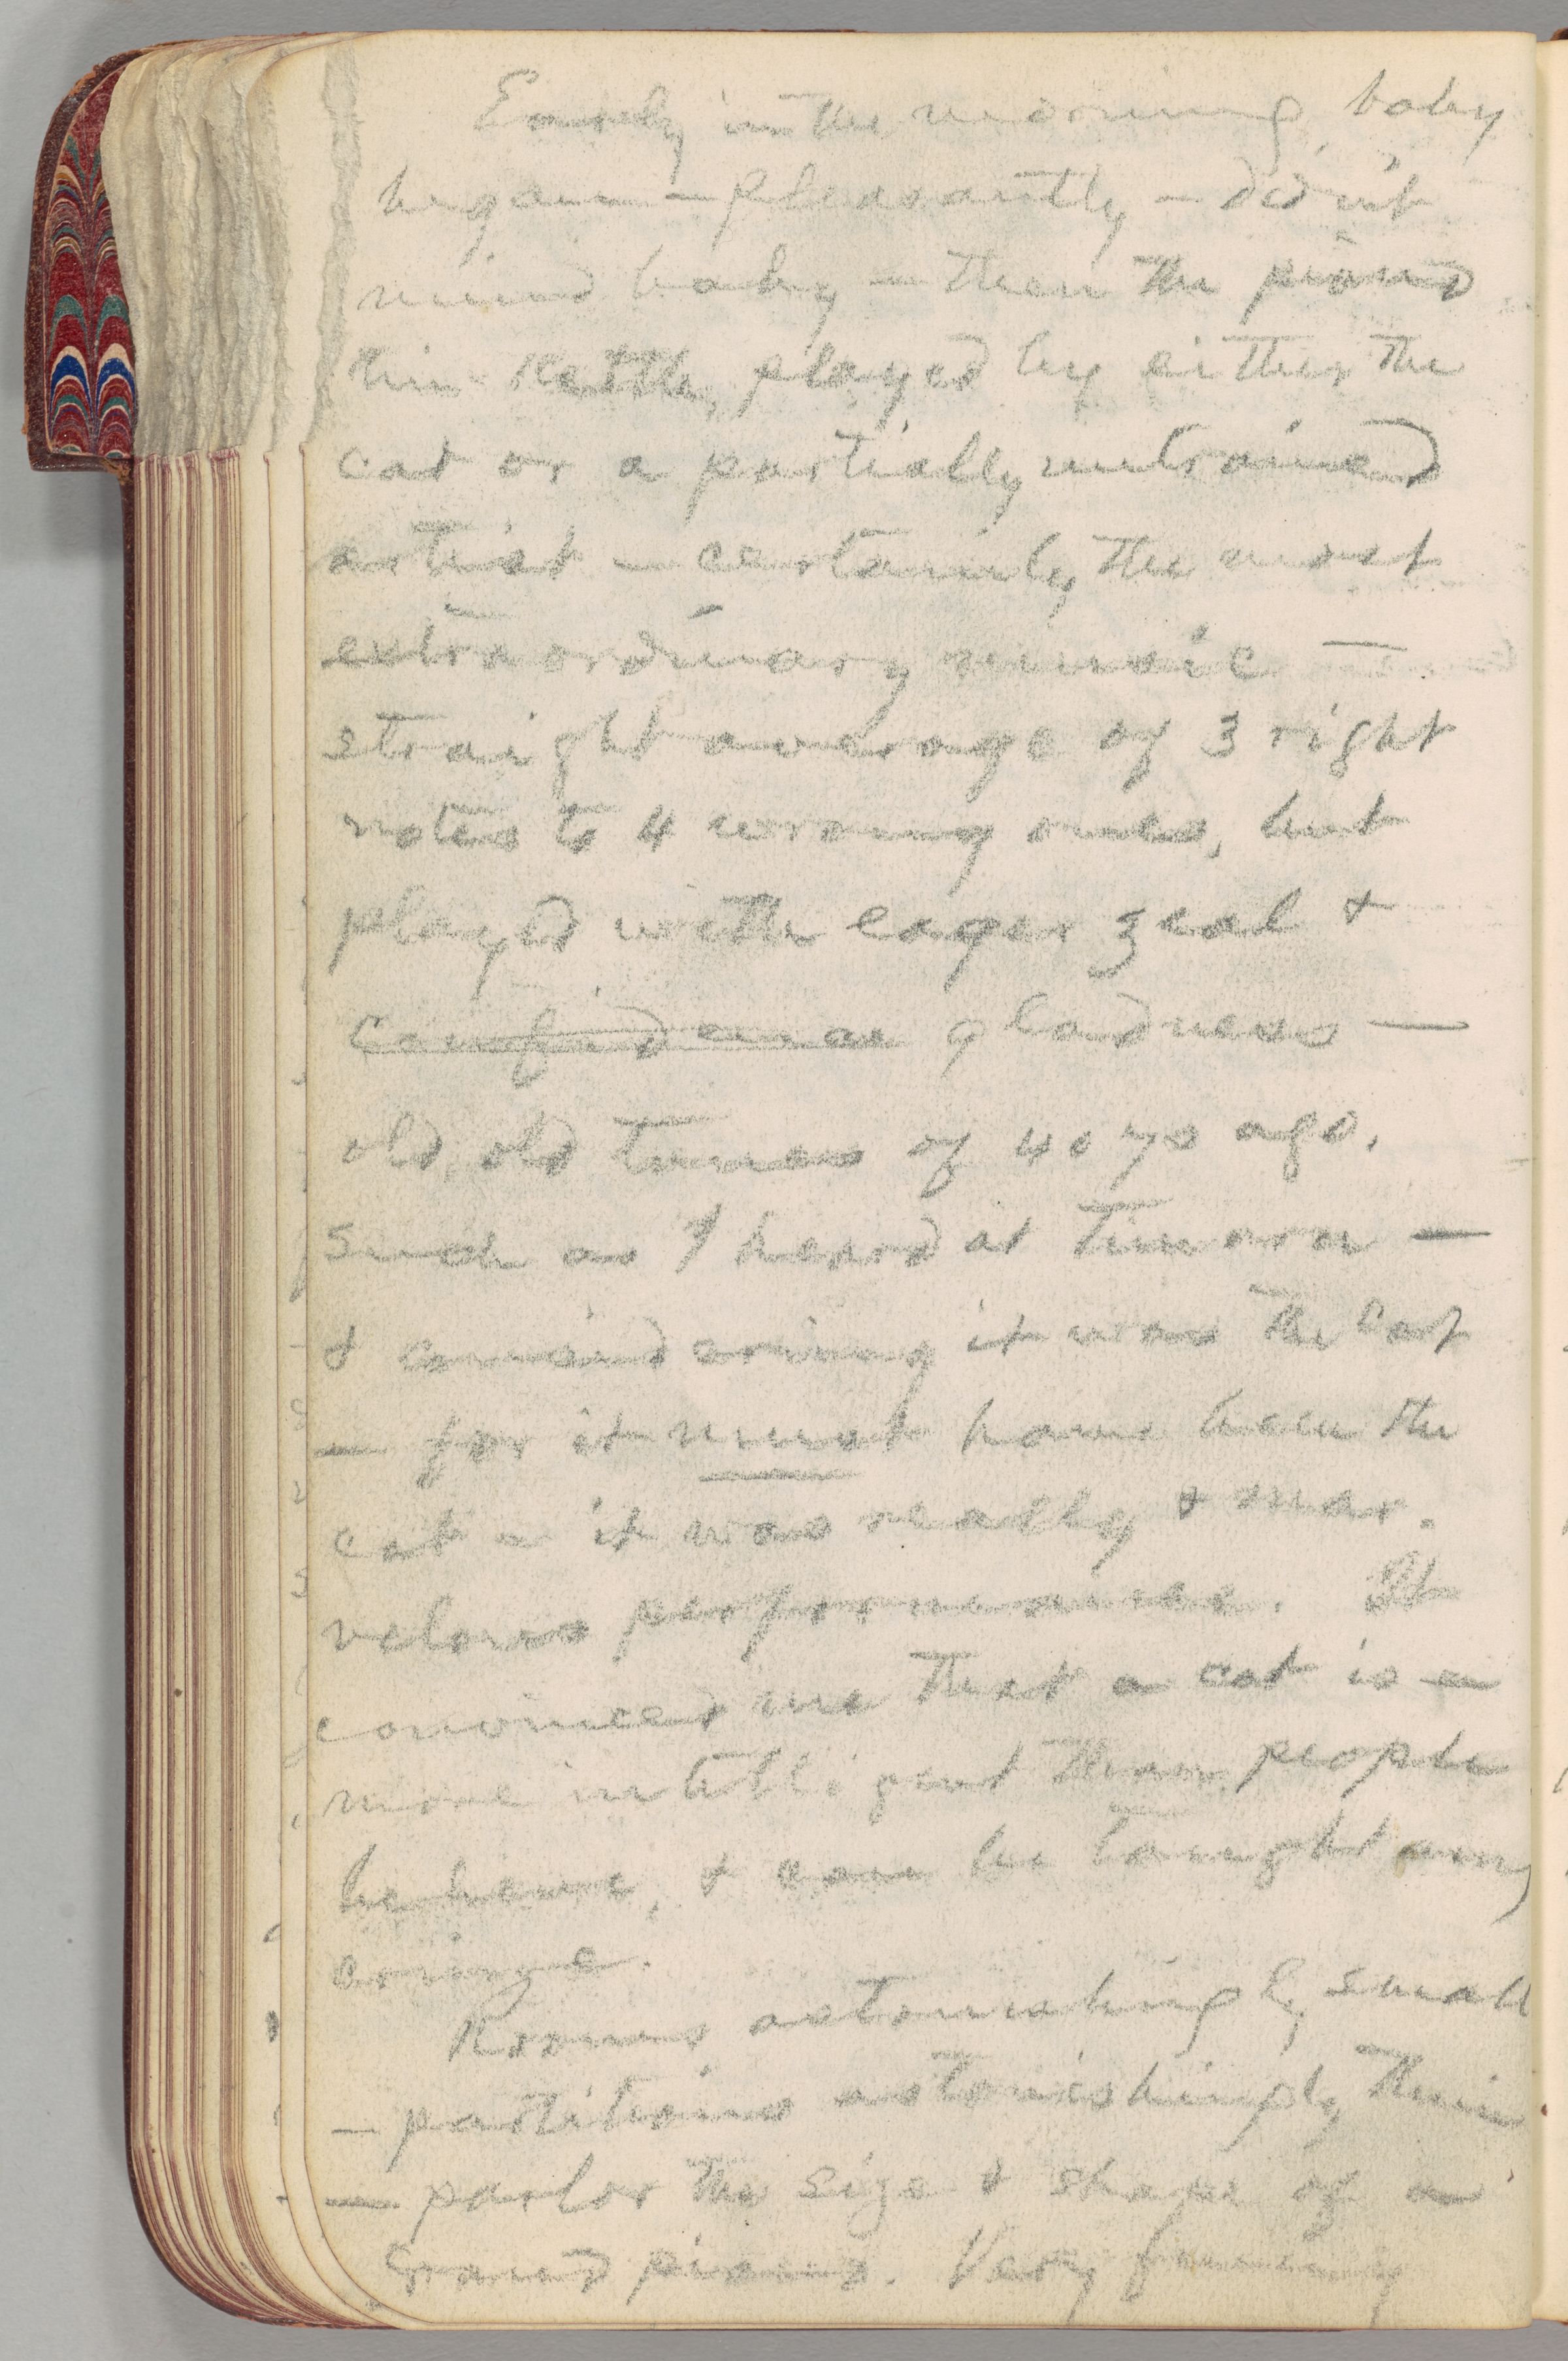 Early in the morning, baby
began — pleasantly — didn't
mind baby — then the piano
tin-kettle, played by either the
cat or a partially untrained
artist — certainly the most
extraordinary music —
straight average of 3 right
notes to 4 wrong ones, but
played with eager zeal &
confidence gladness —
old, old tunes of 40 ys ago,
such as I heard at
& considering it was the cat
— for it must have been the
cat — it was really a mar-
velous performance. It
convinced me that a cat is a
more intelligent than people
believe, & can be taught any
crime.
Rooms astonishingly small
— partitions astonishingly thin
— parlor the size & shape of a
grand piano. Very funny